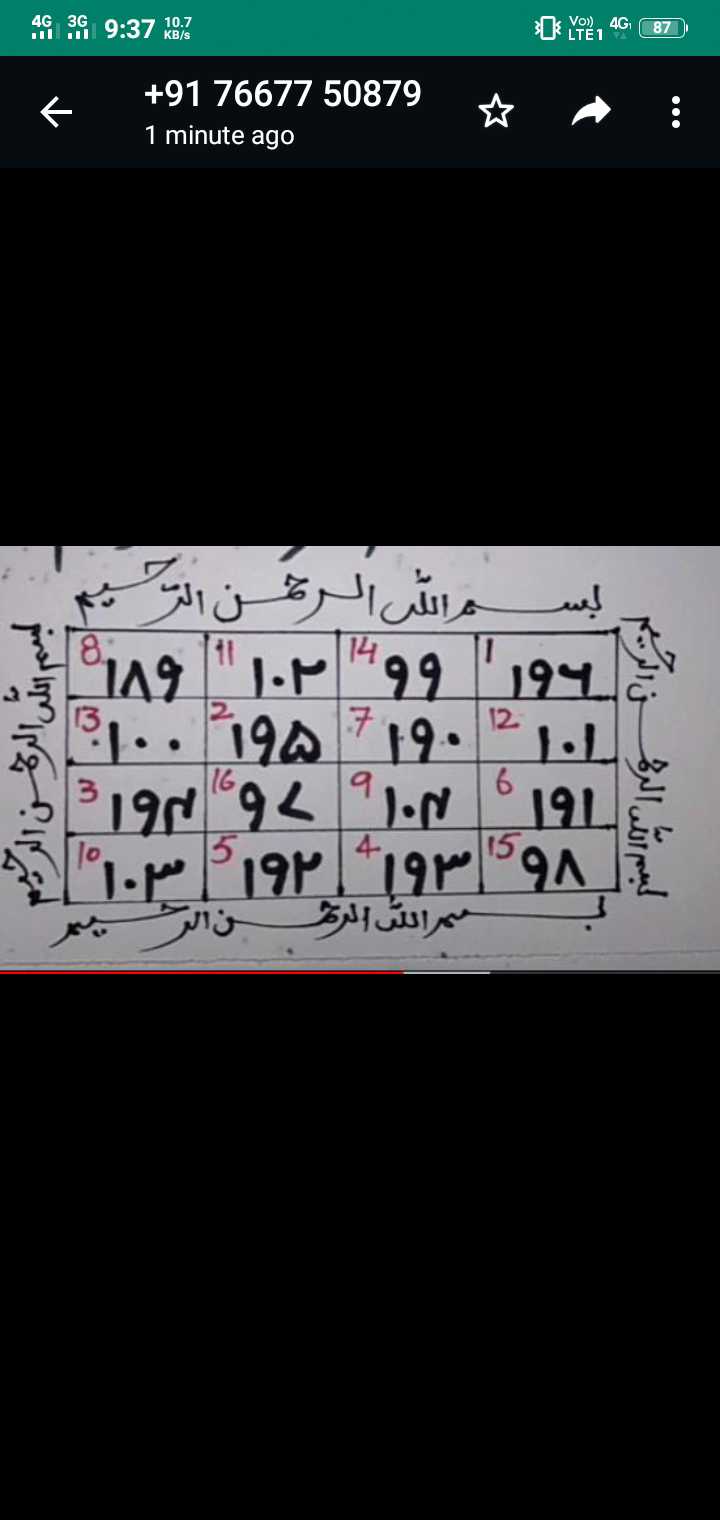 4G 3G 9:37 10.7 KB/s Vo)) LTE1 4G 87
+91 76677 50879
1 minute ago
بسم الله الرحمن الرحيم
بسم الله الرحمن الرحيم
بسم الله الرحمن الرحيم
8 ۱۸۹ 11 ۱۰۲ 14 ۹۹ 1 ۱۹۶
13 ۱۰۰ 2 ۱۹۵ 7 ۱۹۰ 12 ۱۰۱
3 ۱۹۴ 16 ۹۷ 9 ۱۰۴ 6 ۱۹۱
10 ۱۰۳ 5 ۱۹۲ 4 ۱۹۳ 15 ۹۸
بسم الله الرحمن الرحيم